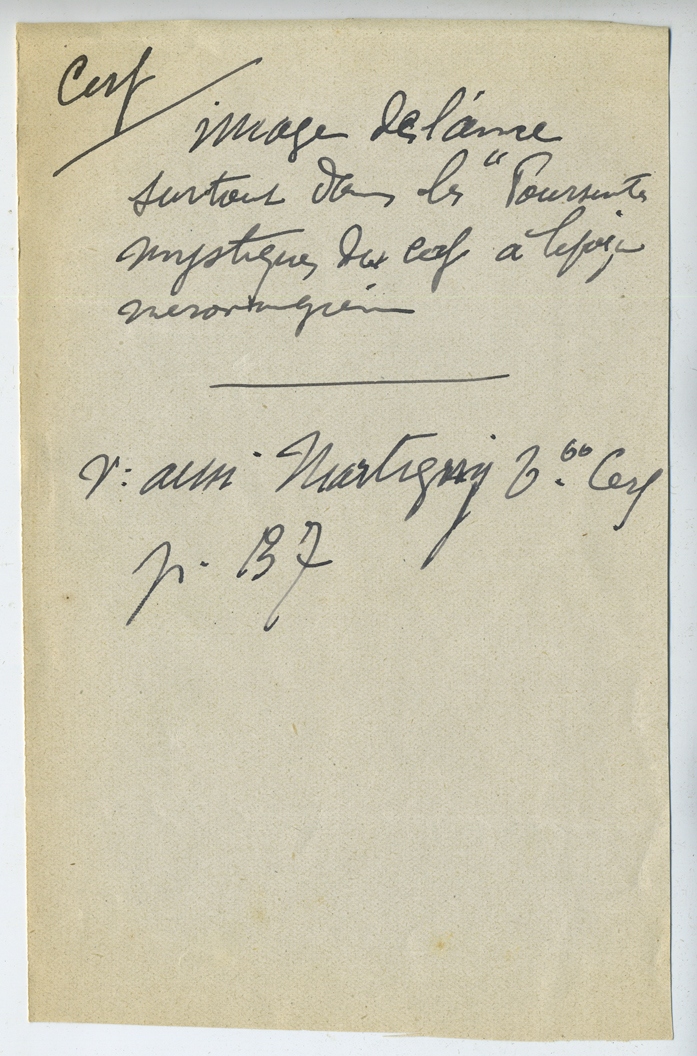 Cerf
image de l'âme
surtout dans les "Poursuites
mystiques du cerf à l'époque
mérovingienne
V: aussi Martigny V.° Cerf
p. 137